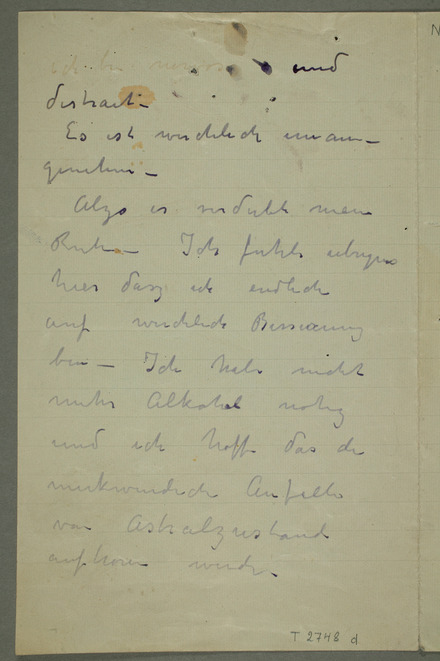 ich bin nervos und
distrait –
Es ist wirklich unan-
genehm –
Alzo es verdirbt mein
Ruh – Ich fuhle ubrigens
hier dasz ich endlich
auf wirkliche Besserung
bin – Ich habe nicht
mehr Alkohol notig
und ich hoffe das die
merkwurdich Anfalle
von Astralzustand
aufhoren werde.
T 2748 d
N